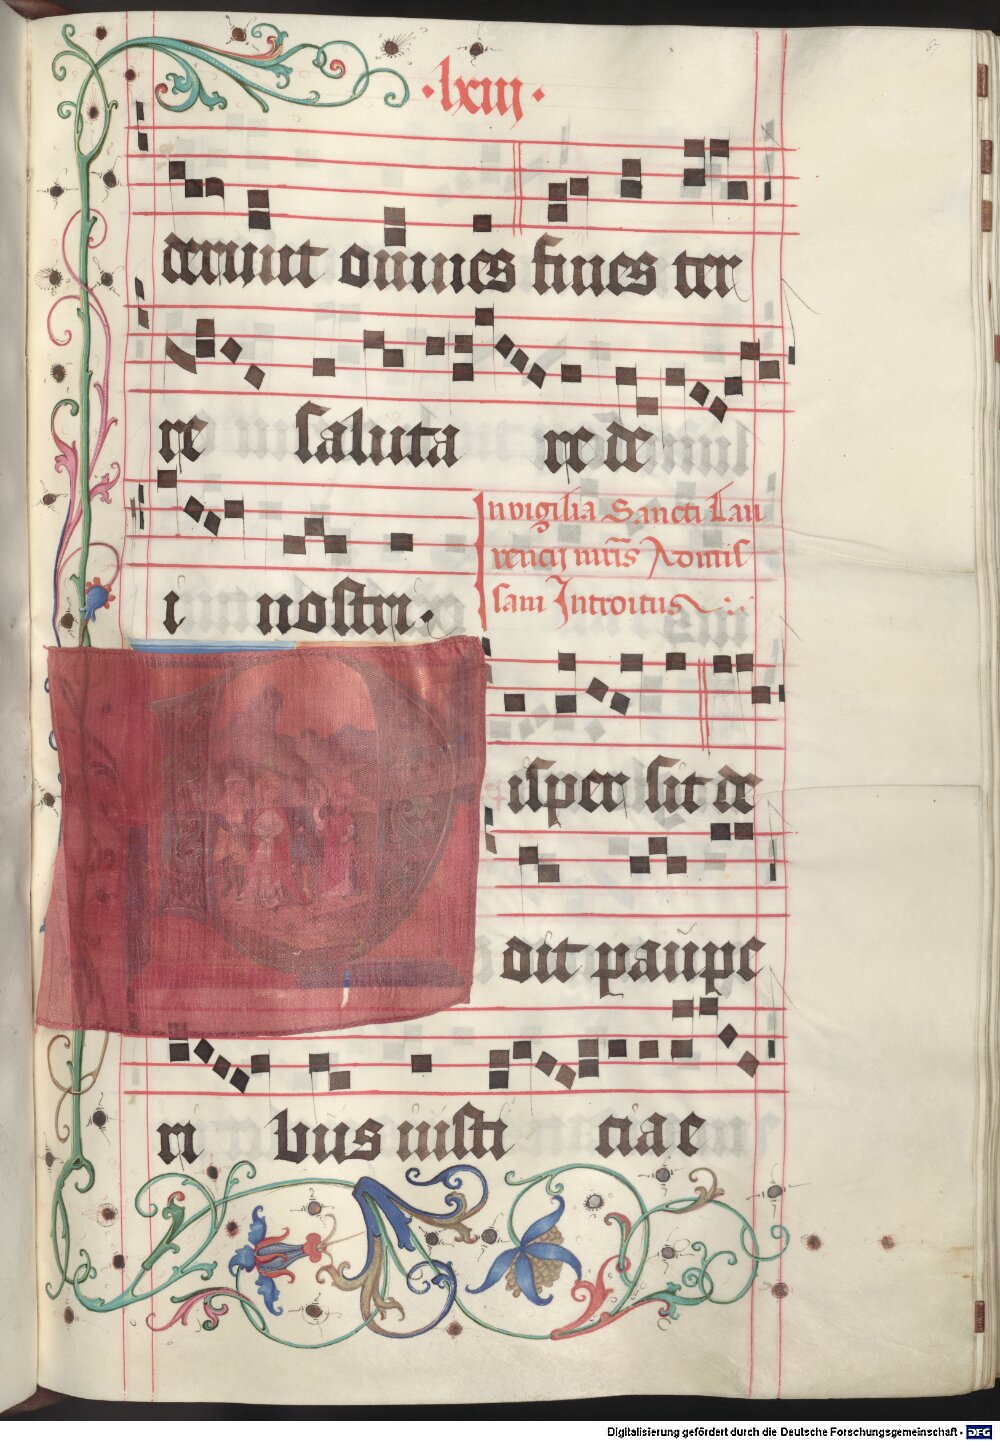 ·lxiij·
derunt omnes fines ter
re saluta re de
i nostri.
In vigilia Sancti Lau
rencij mr̄is Ad mis
sam Introitus
Disper sit de
dit paupe
ri bus iusti ciae
Digitalisierung gefördert durch die Deutsche Forschungsgemeinschaft - DFG